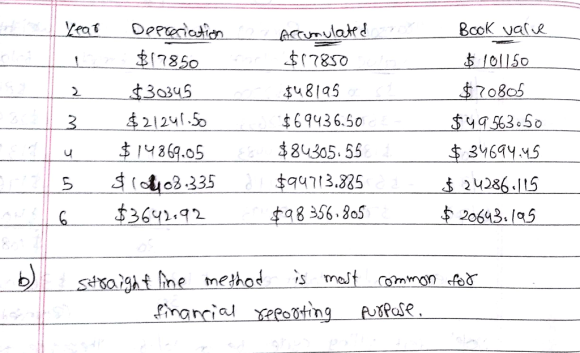 Year Depreciation Accumulated Book value
1 $17850 $17850 $101150
2 $30345 $48195 $70805
3 $21241.50 $69436.50 $49563.50
4 $14869.05 $84305.55 $34694.45
5 $10408.335 $94713.885 $24286.115
6 $3642.92 $98356.805 $20643.195
b) straight line method is most common for
financial reporting purpose.